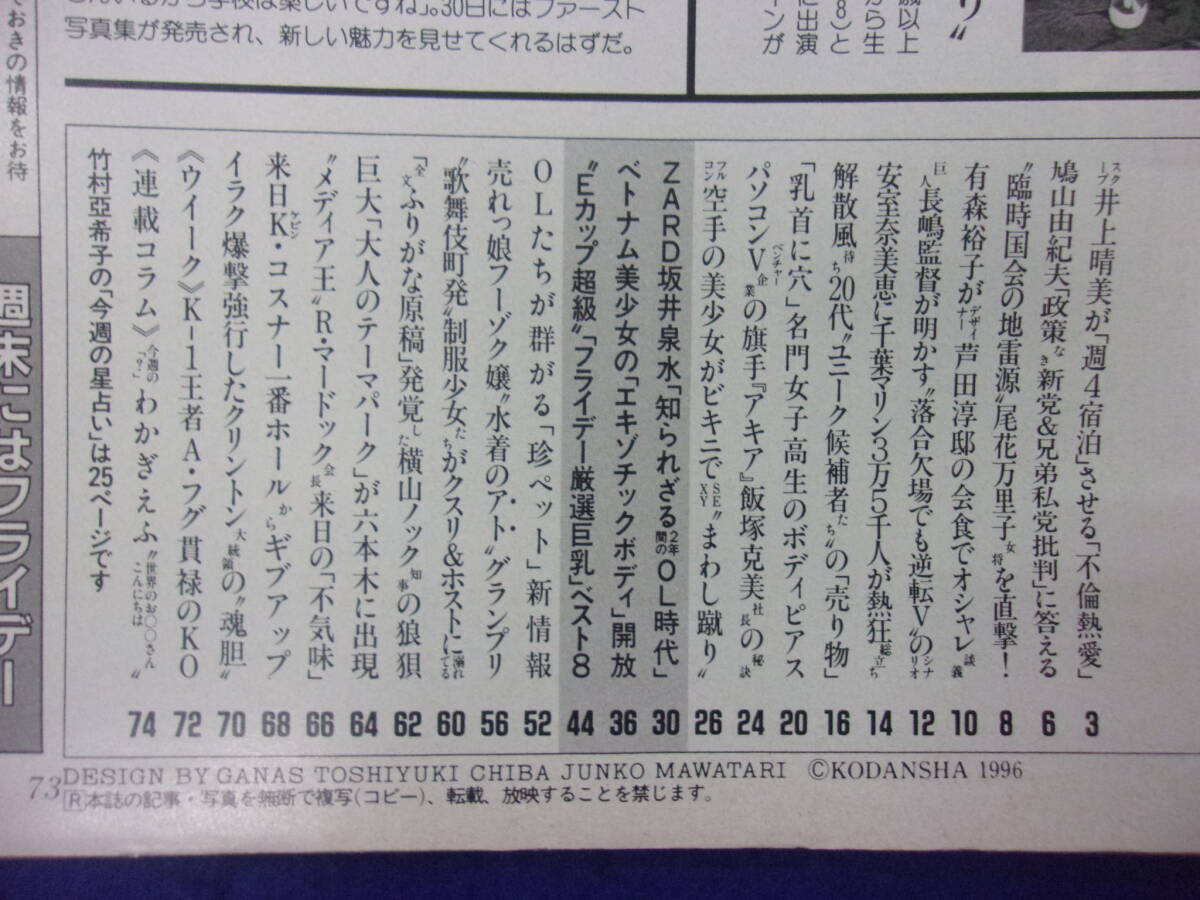 写真集が発売され、新しい魅力を見せてくれるはずだ。
ておきの情報をお待
週末にはフライデー
スクープ井上晴美が「週4宿泊」させる「不倫熱愛」 3
鳩山由紀夫「政策なき新党&兄弟私党批判」に答える 6
"臨時国会の地雷源"尾花万里子女将を直撃! 8
有森裕子がデザイナー芦田淳邸の会食でオシャレ談義 10
巨人長嶋監督が明かす"落合欠場でも逆転V"のシナリオ 12
安室奈美恵に千葉マリン3万5千人が熱狂総立ち 14
解散風待ち20代"ユニーク候補者たち"の「売り物」 16
「乳首に穴」名門女子高生のボディピアス 20
パソコンVベンチャー企業の旗手『アキア』飯塚克美社長の秘訣 24
フルコン空手の美少女がビキニでSEXY"まわし蹴り" 26
ZARD坂井泉水「知られざる2年間のOL時代」 30
ベトナム美少女の「エキゾチックボディ」開放 36
"Eカップ超級"「フライデー厳選巨乳」ベスト8 44
OLたちが群がる「珍ペット」新情報 52
売れっ娘フーゾク嬢"水着のア・ト"グランプリ 56
"歌舞伎町発"制服少女たちがクスリ&ホストに溺れてる 60
「全文ふりがな原稿」発覚した横山ノック知事の狼狽 62
巨大「大人のテーマパーク」が六本木に出現 64
"メディア王"R・マードック会長来日の「不気味」 66
来日K・ケビンコスナー一番ホールからギブアップ 68
イラク爆撃強行したクリントン大統領の"魂胆" 70
《ウイーク》K-1王者A・フグ貫禄のKO 72
《連載コラム》今週の「?」わかぎえふ"世界のお〇〇さんこんにちは" 74
竹村亞希子の「今週の星占い」は25ページです
73
DESIGN BY GANAS TOSHIYUKI CHIBA JUNKO MAWATARI ©KODANSHA 1996
R本誌の記事・写真を無断で複写(コピー)、転載、放映することを禁じます。